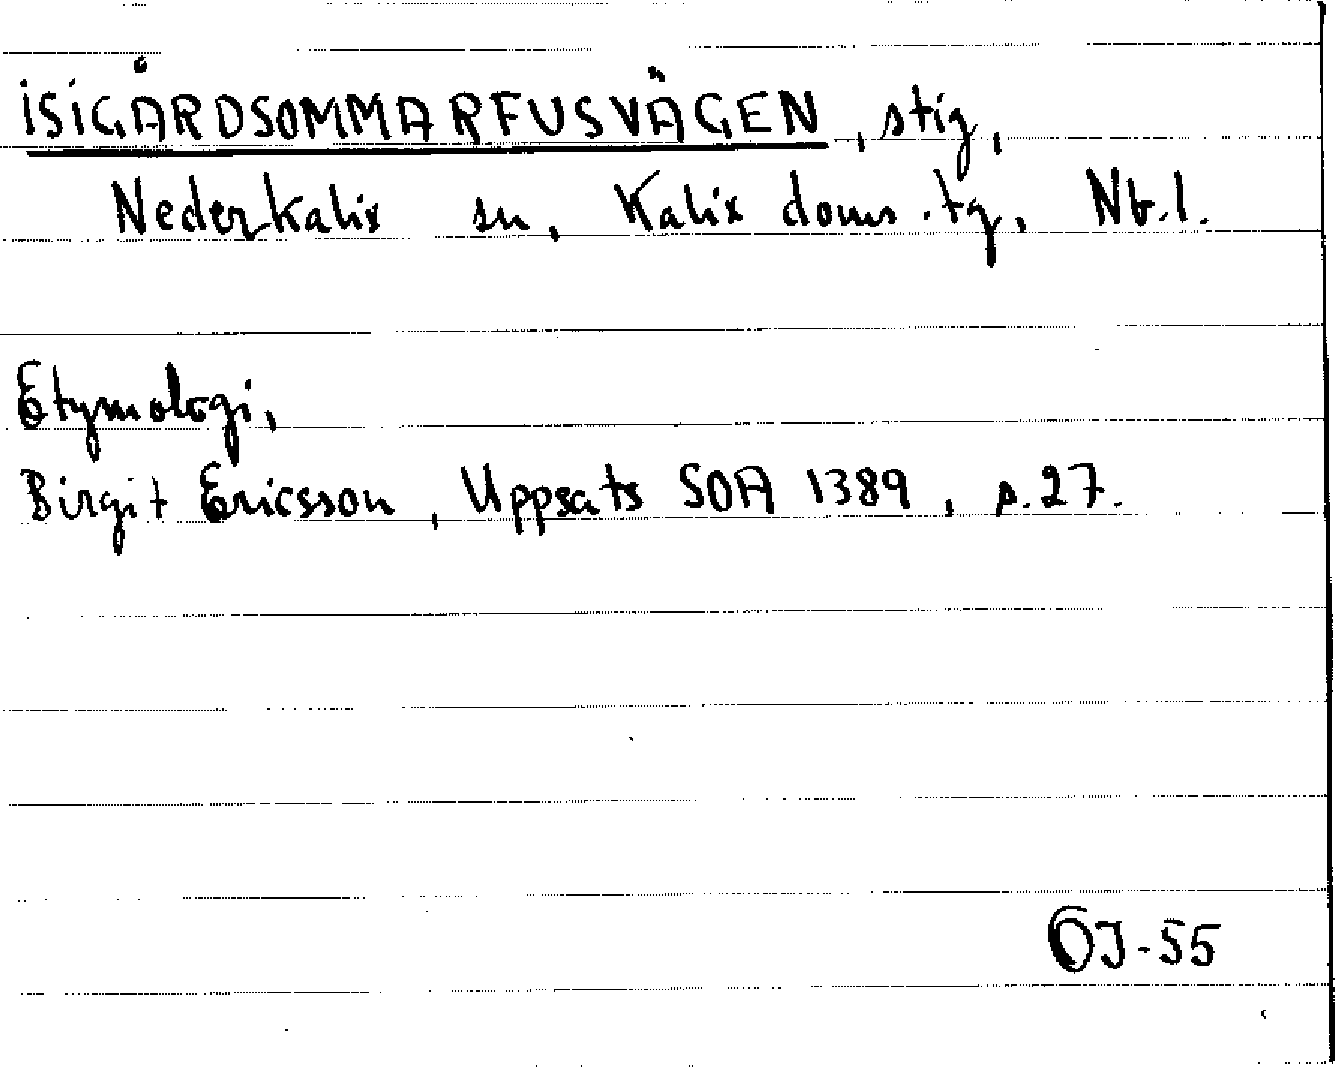 ISIGÅRDSOMMARFUSVÄGEN, stig,
Nederkalix sn, Kalix doms.tg, Nb.l.
Etymologi,
Birgit Ericsson, Uppsats SOA 1389, s.27.
OJ-55